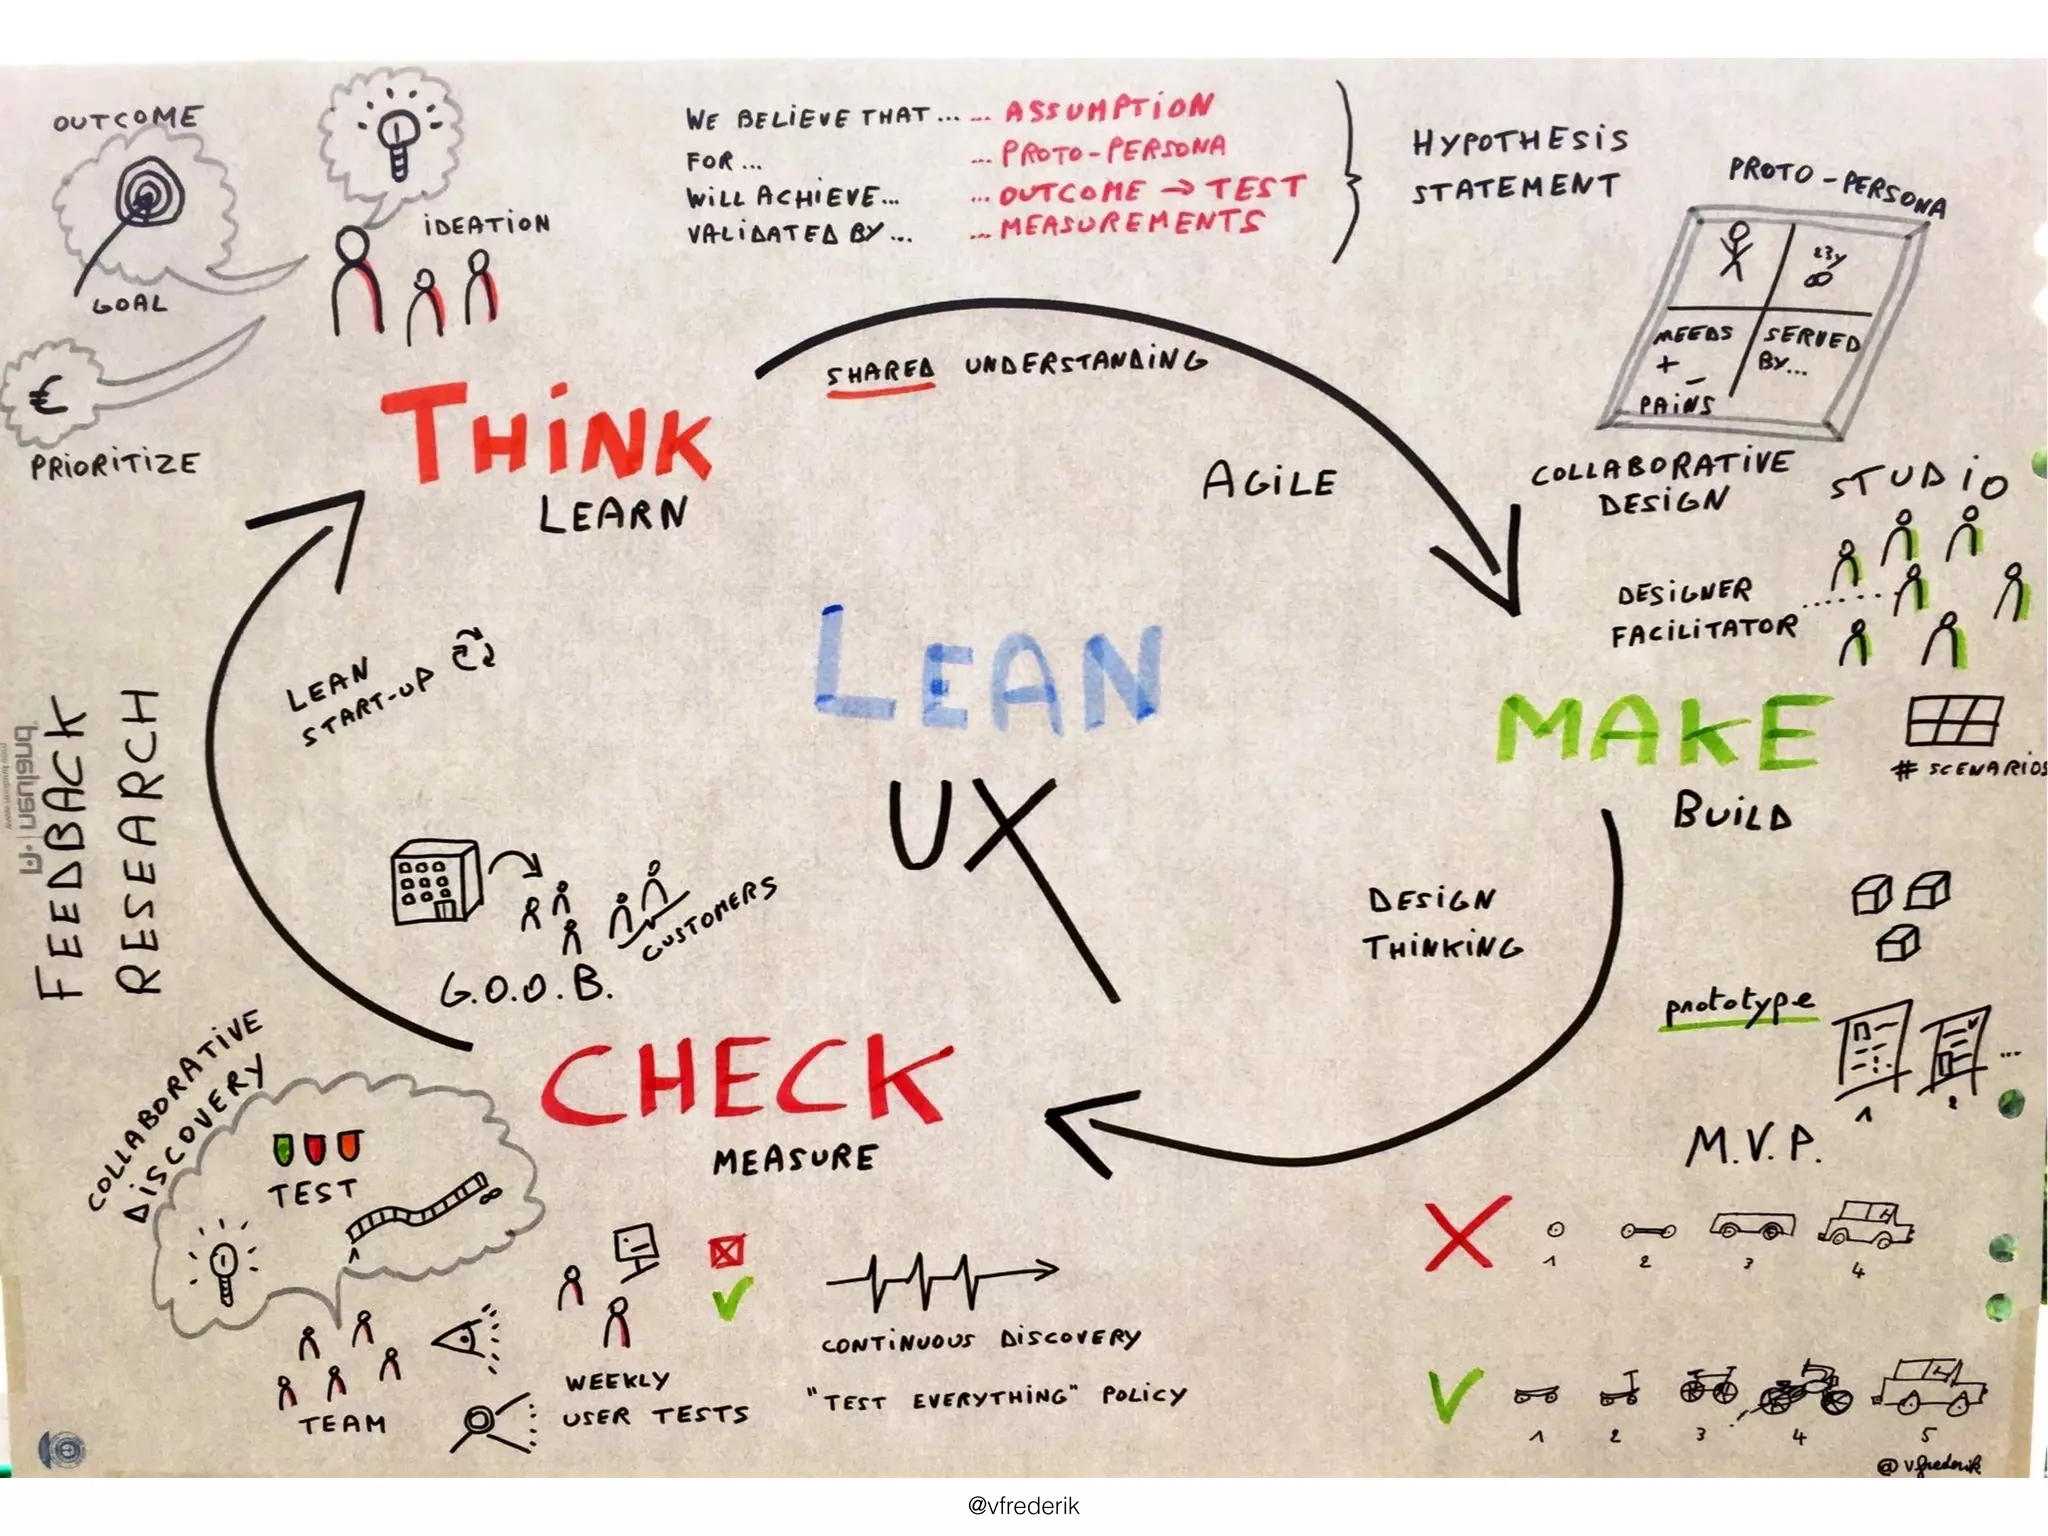 OUTCOME
GOAL
€
PRIORITIZE
IDEATION
WE BELIEVE THAT ... ... ASSUMPTION
FOR ... ... PROTO-PERSONA
WILL ACHIEVE ... ... OUTCOME → TEST
VALIDATED BY ... ... MEASUREMENTS
HYPOTHESIS
STATEMENT
PROTO-PERSONA
23y
NEEDS
+
PAINS
SERVED
BY...
THINK
LEARN
SHARED UNDERSTANDING
AGILE
COLLABORATIVE
DESIGN
STUDIO
DESIGNER
FACILITATOR
LEAN
START-UP
LEAN
UX
MAKE
BUILD
# SCENARIOS
FEEDBACK
RESEARCH
G.O.O.B.
CUSTOMERS
DESIGN
THINKING
prototype
1 2 ...
M.V.P.
1 2 3 4
1 2 3 4 5
CHECK
MEASURE
COLLABORATIVE
DISCOVERY
TEST
1 ∞
TEAM
WEEKLY
USER TESTS
CONTINUOUS DISCOVERY
"TEST EVERYTHING" POLICY
@vfrederik
@vfrederik